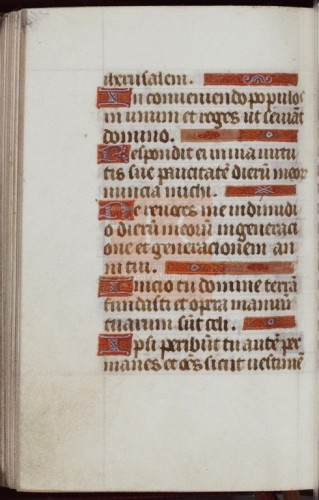 iherusalem.
In conveniendo populos
in unum et reges ut serviāt
domino.
Respondit ei in via virtu
tis sue paucitatē dierū meor̄
nuncia michi.
Ne revoces me in dimidi
o dierū meorū in generaci
one et generacionem an
ni tui.
Inicio tu domine terrā
fundasti et opera manuū
tuarum sūt celi.
Ipsi peribūt tu autē per
manes et oēs sicut vestimē